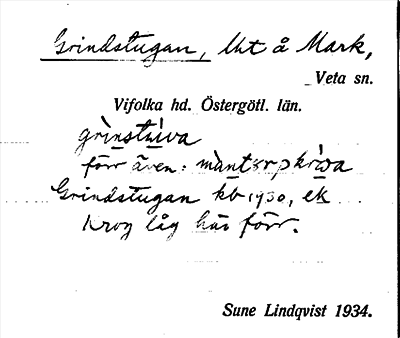 Grindstugan, lht å Mark,
Veta sn.
Vifolka hd. Östergötl. län.
grinstuva
förr även:
Grindstugan kb 1930, ek
Krog låg här förr.
Sune Lindqvist 1934.